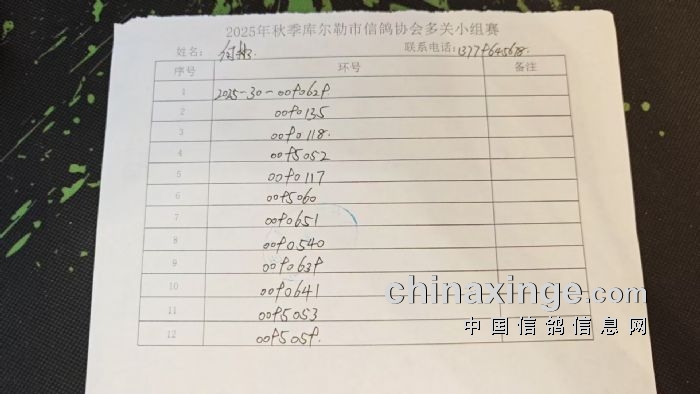 2025年秋季库尔勒市信鸽协会多关小组赛
姓名: 联系电话:
序号 环号 备注
1 2025-30-0090629
2 0090135
3 0090118.
4 0095052
5 0090117
6 0095060
7 0090651
8 0090540
9 0090639
10 0090641
11 0095053
12 0095059.
chinaxinge.com
中国信鸽信息网